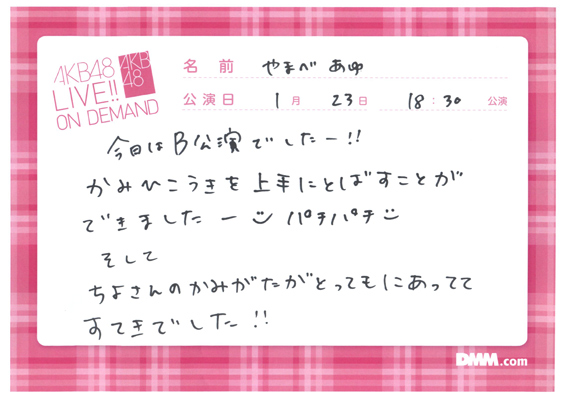 AKB48
LIVE!!
ON DEMAND
AKB
48
名前 やまべ あゆ
公演日 1月 23日 18:30 公演
今日はB公演でしたー!!
かみひこうきを上手にとばすことが
できましたー パチパチ
そして
ちよさんのかみがたがとってもにあってて
すてきでした!!
DMM.com